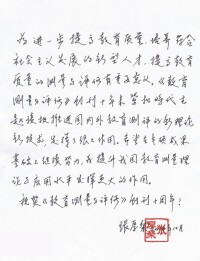 为进一步提高教育质量，培养符合
社会主义发展的新型人才，提高教育
质量的测量与评价有重要意义。《教育
测量与评价》创刊十年来紧扣时代主
题积极推进国内外教育测评的新理论
新技术，发挥了很大作用。希望在取得成果
基础上继续努力，为提升我国教育测量理
论与应用水平发挥更大的作用。
祝贺《教育测量与评价》创刊十周年！
张厚粲